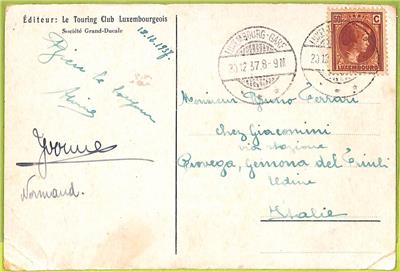 Éditeur: Le Touring Club Luxembourgeois
Société Grand-Ducale
Yvonne
Normand.
LUXEMBOURG-GARE
20.12.37.8-9
50
C
LUXEMBOURG
Monsieur Bruno Ferrari
chez Giacomini
via stazione
Piovega, Gemona del Friuli
Udine
Italie